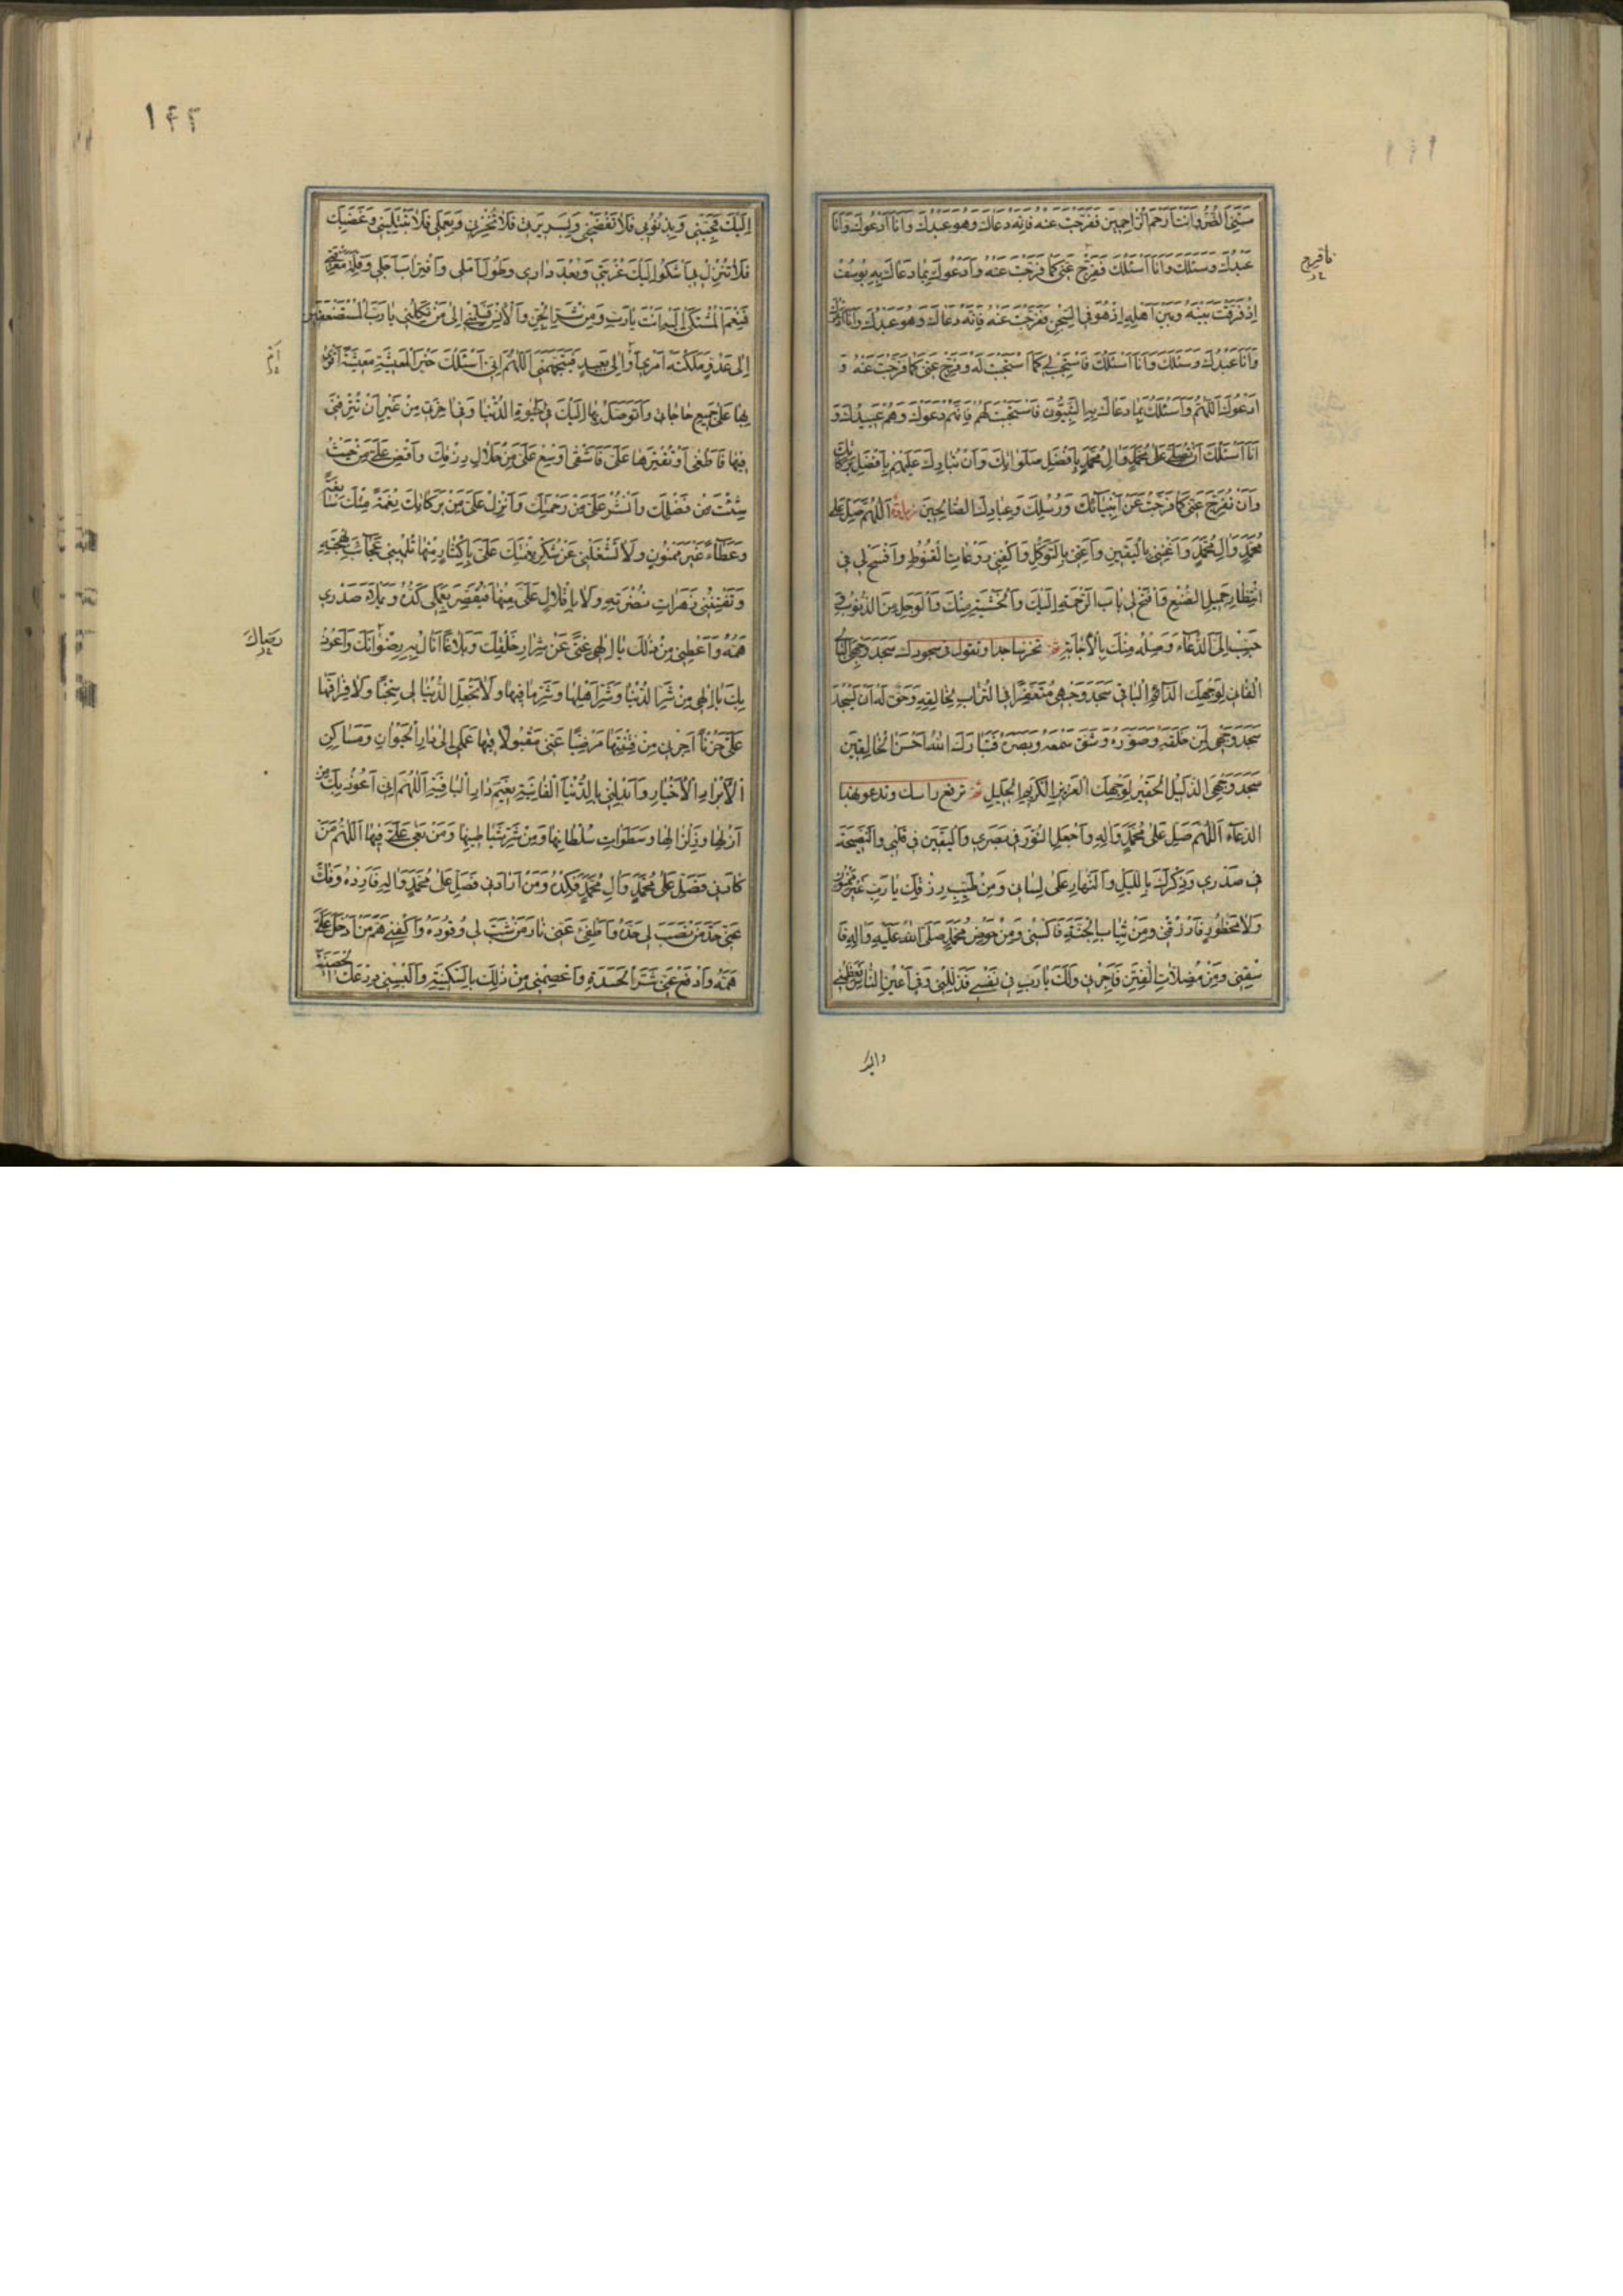 مَسَّنِيَ الضُّرُّ وَاَنْتَ اَرْحَمُ الرّاحِمينَ فَفَرَّجْتَ عَنْهُ فَاِنَّهُ دَعاكَ وَهُوَ عَبْدُكَ وَاَنَا اَدْعُوكَ وَاَنَا
عَبْدُكَ وَسَئَلَكَ وَاَنَا اَسْئَلُكَ فَفَرِّجْ عَنّى كَما فَرَّجْتَ عَنْهُ وَاَدْعُوكَ بِما دَعاكَ بِهِ يُوسُفُ
اِذْ فَرَّقْتَ بَيْنَهُ وَبَيْنَ اَهْلِهِ اِذْ هُوَ فِى السِّجْنِ فَفَرَّجْتَ عَنْهُ فَاِنَّهُ دَعاكَ وَهُوَ عَبْدُكَ وَاَنَا اَدْعُوكَ
وَاَنَا عَبْدُكَ وَسَئَلَكَ وَاَنَا اَسْئَلُكَ فَاسْتَجِبْ لى كَمَا اسْتَجَبْتَ لَهُ وَفَرِّجْ عَنّى كَما فَرَّجْتَ عَنْهُ وَ
اَدْعُوكَ اَللّهُمَّ وَاَسْئَلُكَ بِما دَعاكَ بِهِ النَّبِيُّونَ فَاسْتَجَبْتَ لَهُمْ فَاِنَّهُمْ دَعَوْكَ وَهُمْ عَبيدُكَ وَ
اَنَا اَسْئَلُكَ اَنْ تُصَلِّىَ عَلى مُحَمَّدٍ وَالِ مُحَمَّدٍ بِاَفْضَلِ صَلَواتِكَ وَاَنْ تُبارِكَ عَلَيْهِمْ بِاَفْضَلِ بَرَكاتِكَ
وَاَنْ تُفَرِّجَ عَنّى كَما فَرَّجْتَ عَنْ اَنْبِيائِكَ وَرُسُلِكَ وَعِبادِكَ الصّالِحينَ زيادة اَللّهُمَّ صَلِّ عَلى
مُحَمَّدٍ وَالِ مُحَمَّدٍ وَاَغْنِنى بِالْيَقينِ وَاَعِنّى بِالتَّوَكُّلِ وَاكْفِنى رَوْعاتِ الْقُنُوطِ وَافْسَحْ لى فِى
انْتِظارِ جَميلِ الصُّنْعِ وَافْتَحْ لى بابَ الرَّحْمَةِ اِلَيْكَ وَالْخَشْيَةِ مِنْكَ وَالْوَجَلِ مِنَ الذُّنُوبِ وَ
حَبِّبْ اِلَىَّ الدُّعاءَ وَصِلْهُ مِنْكَ بِالْاِجابَةِ ثم تخرّ ساجدا وتقول فى سجودك سَجَدَ وَجْهِىَ الْبالى
الْفانى لِوَجْهِكَ الدّائِمِ الْباقى سَجَدَ وَجْهى مُتَعَفِّراً فِى التُّرابِ لِخالِقِهِ وَحَقٌّ لَهُ اَنْ يَسْجُدَ
سَجَدَ وَجْهى لِمَنْ خَلَقَهُ وَصَوَّرَهُ وَشَقَّ سَمْعَهُ وَبَصَرَهُ فَتَبارَكَ اللهُ اَحْسَنُ الْخالِقينَ
سَجَدَ وَجْهِىَ الذَّليلُ الْحَقيرُ لِوَجْهِكَ الْعَزيزِ الْكَريمِ الْجَليلِ ثم ترفع راسك وتدعو بهذا
الدعاء اَللّهُمَّ صَلِّ عَلى مُحَمَّدٍ وَالِهِ وَاجْعَلِ النُّورَ فى بَصَرى وَالْيَقينَ فى قَلْبى وَالنَّصيحَةَ
فى صَدْرى وَذِكْرَكَ بِاللَّيْلِ وَالنَّهارِ عَلى لِسانى وَمِنْ طَيِّبِ رِزْقِكَ يا رَبِّ غَيْرَ مَمْنُونٍ
وَلا مَحْظُورٍ فَارْزُقْنى وَمِنْ ثِيابِ الْجَنَّةِ فَاكْسُنى وَمِنْ حَوْضِ مُحَمَّدٍ صَلَّى اللهُ عَلَيْهِ وَالِهِ فَا
سْقِنى وَمِنْ مُضِلّاتِ الْفِتَنِ فَاَجِرْنى وَلَكَ يا رَبِّ فى نَفْسى فَذَلِّلْنى وَفى اَعْيُنِ النّاسِ فَعَظِّمْنى
١٤٢
اِلَيْكَ فَحَبِّبْنى وَبِذُنُوبى فَلا تَفْضَحْنى وَبِسَريرَتى فَلا تُخْزِنى وَبِعَمَلى فَلا تَبْتَلِيَنّى وَغَضَبَكَ
فَلا تُنْزِلْ بى اَشْكُو اِلَيْكَ غُرْبَتى وَبُعْدَ دارى وَطُولَ اَمَلى وَاقْتِرابَ اَجَلى وَقِلَّةَ مَعْرِفَتى
فَنِعْمَ الْمُشْتَكى اِلَيْهِ اَنْتَ يا رَبِّ وَمِنْ شَرِّ الْجِنِّ وَالْاِنْسِ فَسَلِّمْنى اِلى مَنْ تَكِلُنى يا رَبَّ الْمُسْتَضْعَفينَ
اِلى عَدُوٍّ مَلَّكْتَهُ اَمْرى اَوْ اِلى بَعيدٍ فَيَتَجَهَّمَنى اَللّهُمَّ اِنّى اَسْئَلُكَ خَيْرَ الْمَعيشَةِ مَعيشَةً اَقْوى
بِها عَلى جَميعِ حاجاتى وَاَتَوَصَّلُ بِها اِلَيْكَ فى حَيوةِ الدُّنْيا وَفى اخِرَتى مِنْ غَيْرِ اَنْ تُتْرِفَنى
فيها فَاَطْغى اَوْ تُقَتِّرَها عَلَىَّ فَاَشْقى اَوْسِعْ عَلَىَّ مِنْ حَلالِ رِزْقِكَ وَاَفِضْ عَلَىَّ مِنْ حَيْثُ
شِئْتَ مِنْ فَضْلِكَ وَانْشُرْ عَلَىَّ مِنْ رَحْمَتِكَ وَاَنْزِلْ عَلَىَّ مِنْ بَرَكاتِكَ نِعْمَةً مِنْكَ سابِغَةً
وَعَطاءً غَيْرَ مَمْنُونٍ وَلا تَشْغَلْنى عَنْ شُكْرِ نِعْمَتِكَ عَلَىَّ بِاِكْثارٍ مِنْها تُلْهينى عَجائِبُ بَهْجَتِهِ
وَتَفْتِنُنى زَهَراتُ نَضْرَتِهِ وَلا بِاِقْلالٍ عَلَىَّ مِنْها فَيَقْصُرَ بِعَمَلى كَدُّهُ وَيَمْلَاَ صَدْرى
هَمُّهُ وَاَعْطِنى مِنْ ذلِكَ يا اِلهى غِنىً عَنْ شِرارِ خَلْقِكَ وَبَلاغاً اَنالُ بِهِ رِضْوانَكَ وَاَعُوذُ
بِكَ يا اِلهى مِنْ شَرِّ الدُّنْيا وَشَرِّ اَهْلِها وَشَرِّ ما فيها وَلا تَجْعَلِ الدُّنْيا لى سِجْناً وَلا فِراقَها
عَلَىَّ حُزْناً اَجِرْنى مِنْ فِتْنَتِها مَرْضِيّاً عَنّى مَقْبُولاً فيها عَمَلى اِلى دارِ الْحَيَوانِ وَمَساكِنِ
الْاَبْرارِ الْاَخْيارِ وَاَبْدِلْنى بِالدُّنْيَا الْفانِيَةِ نَعيمَ دارِ الْباقِيَةِ اَللّهُمَّ اِنّى اَعُوذُ بِكَ مِنْ
اَزْلِها وَزِلْزالِها وَسَطَواتِ سُلْطانِها وَمِنْ شَرِّ شَياطينِها وَمَنْ بَغى عَلَىَّ فيها اَللّهُمَّ مَنْ
كادَنى فَصَلِّ عَلى مُحَمَّدٍ وَالِ مُحَمَّدٍ فَكِدْهُ وَمَنْ اَرادَنى فَصَلِّ عَلى مُحَمَّدٍ وَالِهِ فَاَرِدْهُ وَفُلَّ
عَنّى حَدَّ مَنْ نَصَبَ لى حَدَّهُ وَاَطْفِئْ عَنّى نارَ مَنْ شَبَّ لى وَقُودَهُ وَاكْفِنى هَمَّ مَنْ اَدْخَلَ عَلَىَّ
هَمَّهُ وَادْفَعْ عَنّى شَرَّ الْحَسَدَةِ وَاعْصِمْنى مِنْ ذلِكَ بِالسَّكينَةِ وَاَلْبِسْنى دِرْعَكَ الْحَصينَةَ